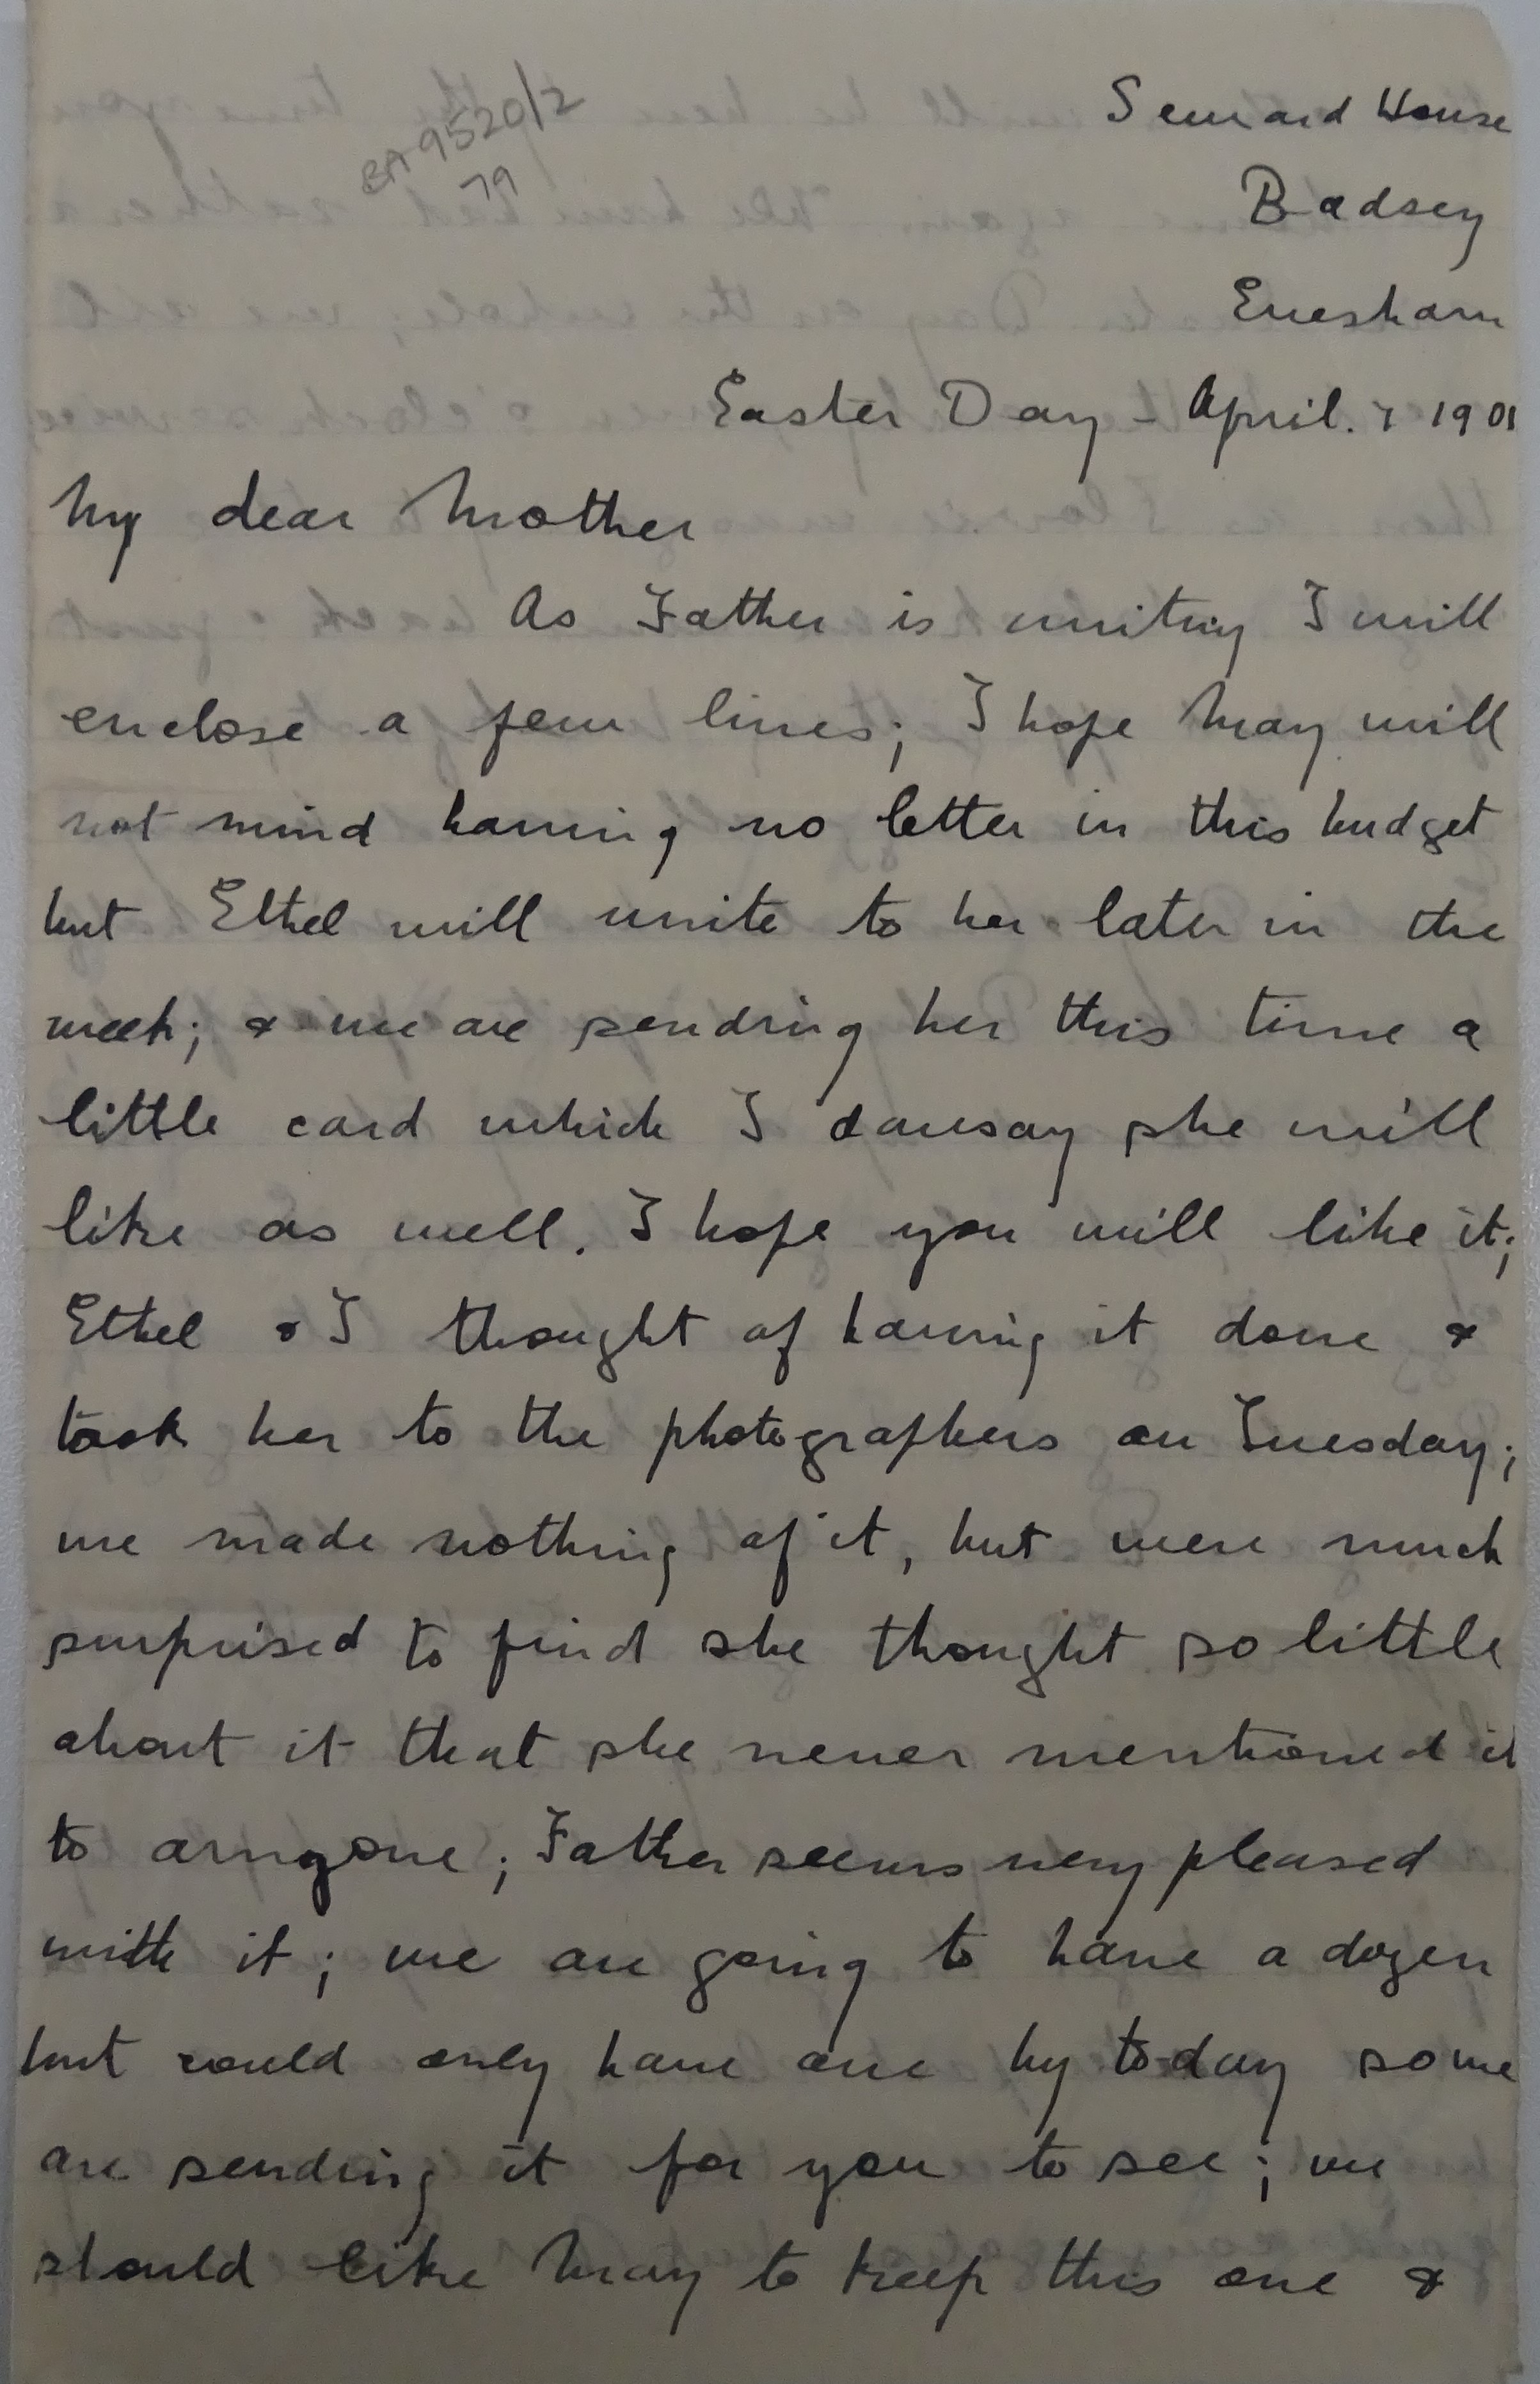 BA 9520/2
79
Seward House
Badsey
Evesham
Easter Day - April. 7 1901
My dear Mother
As Father is writing I will
enclose a few lines; I hope May will
not mind having no letter in this budget
but Ethel will write to her later in the
week; & we are sending her this time a
little card which I daresay she will
like as well. I hope you will like it;
Ethel & I thought of having it done &
took her to the photographers on Tuesday;
we made nothing of it, but were much
surprised to find she thought so little
about it that she never mentioned it
to anyone; Father seems very pleased
with it; we are going to have a dozen
but could only have one by today so we
are sending it for you to see; we
should like May to keep this one &